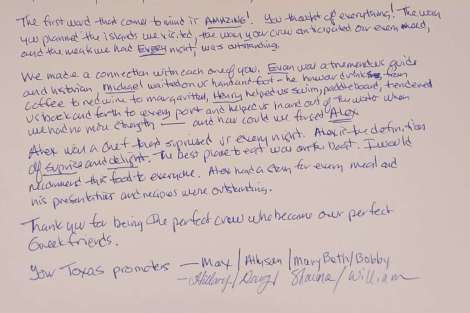 The first word that comes to mind is AMAZING! You thought of everything! The way
you planned the islands we visited, the way your crew anticipated our every need,
and the meals we had Every night, was outstanding.
We made a connection with each one of you. Evan was a tremendous guide
and historian, Michael waited on us hand and foot - he knew our drinks from
coffee to red wine to margaritas, Henry helped us swim, paddle board, tendered
us back and forth to every port and helped us in and out of the water when
we had no more strength — and how could we forget Alex
Alex was a chef that suprised us every night. Alex is the definition
of suprise and delight. The best place to eat was on the boat. I would
recommend this food to everyone. Alex had a story for every meal and
his presentation and recipes were outstanding.
Thank you for being the perfect crew who became our perfect
Greek friends.
Your Texas promoters — Max / Allysan / Mary Beth / Bobby
- Hillary / Doug / Shauna / William